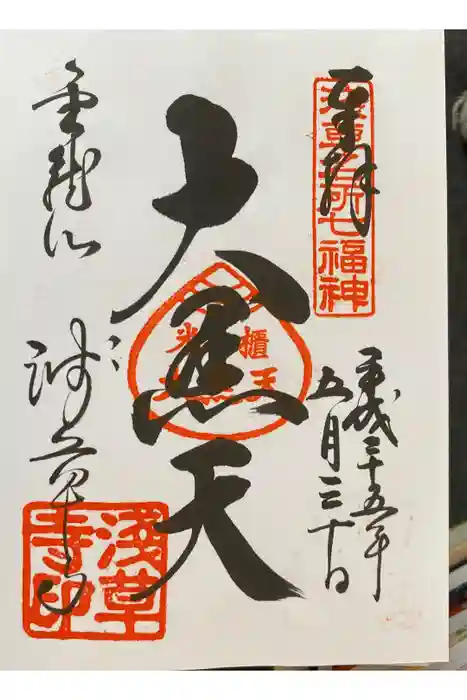 奉拝
浅草名所七福神
平成二十五年
五月三十日
大黒天
櫃
米
金龍山
浅草寺
淺草
寺印